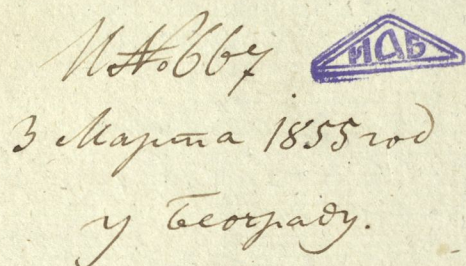 И№667
ИДБ
3 Марта 1855 год
у Београду.